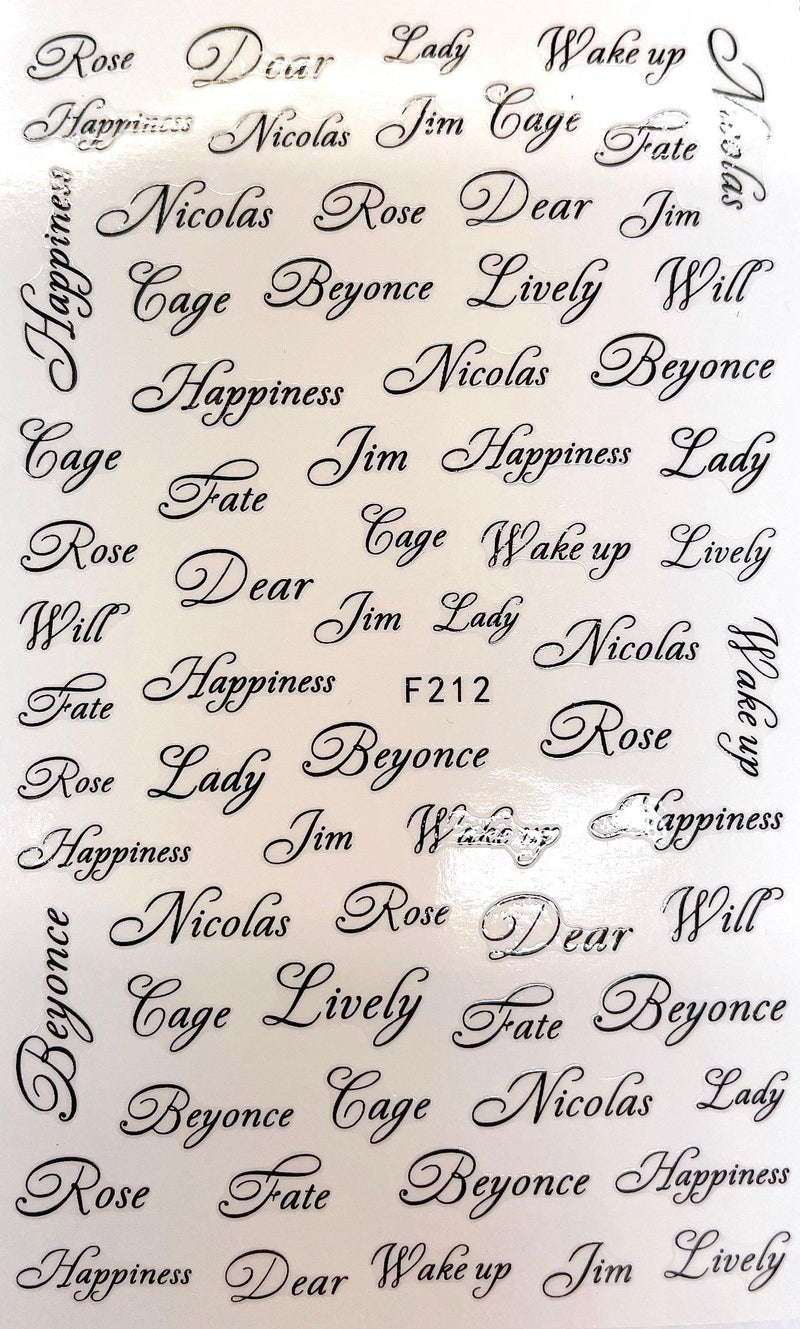 Rose Dear Lady Wake up Nicolas
Happiness Nicolas Jim Cage Fate
Happiness Nicolas Rose Dear Jim
Cage Beyonce Lively Will
Happiness Nicolas Beyonce
Cage Jim Happiness Lady
Fate
Rose Cage Wake up Lively
Dear
Will Jim Lady Nicolas Wake up
Fate Happiness F212
Rose
Rose Lady Beyonce
Happiness Jim Wake up Happiness
Beyonce Nicolas Rose Dear Will
Cage Lively Fate Beyonce
Beyonce Cage Nicolas Lady
Rose Fate Beyonce Happiness
Happiness Dear Wake up Jim Lively